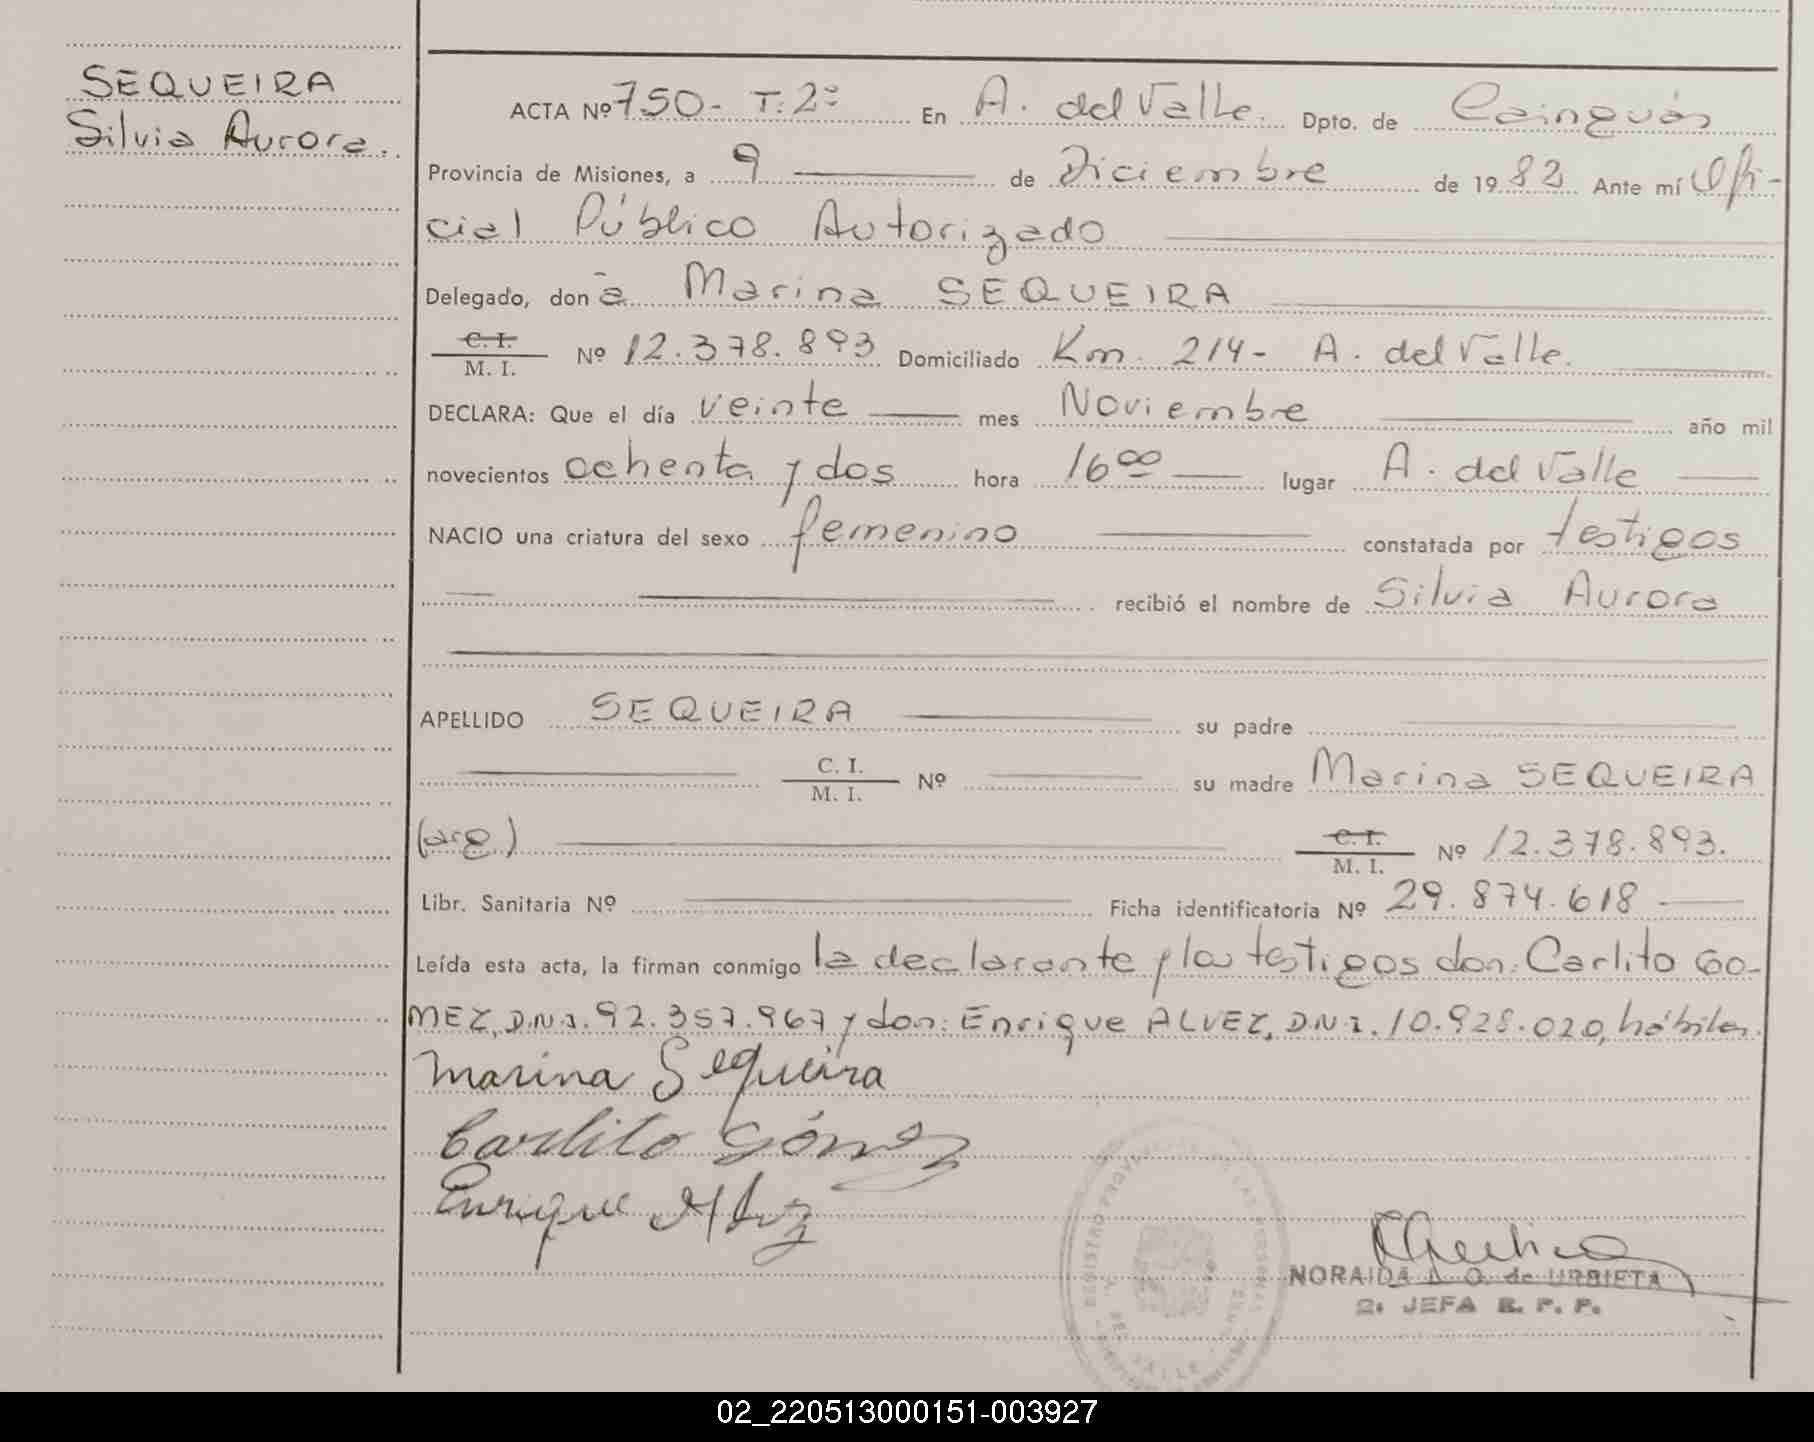 SEQUEIRA
Silvia Aurora.
ACTA Nº 750- T: 2º En A. del Valle. Dpto. de Cainguás
Provincia de Misiones, a 9 de Diciembre de 1982 Ante mí Ofi-
cial Público Autorizado
Delegado, don a Marina SEQUEIRA
C. I.
M. I. Nº 12.378.893 Domiciliado Km. 214- A. del Valle.
DECLARA: Que el día veinte mes Noviembre año mil
novecientos ochenta y dos hora 16 00 lugar A. del Valle
NACIO una criatura del sexo femenino constatada por testigos
recibió el nombre de Silvia Aurora
APELLIDO SEQUEIRA su padre
C. I.
M. I. Nº su madre Marina SEQUEIRA
(arg) C. I.
M. I. Nº 12.378.893.
Libr. Sanitaria Nº Ficha identificatoria Nº 29.874.618
Leída esta acta, la firman conmigo la declarante y los testigos don: Carlito GO-
MEZ, D.N.I. 92.357.967 y don: Enrique ALVEZ, D.N.I. 10.928.020, hábiles.
Marina Sequeira
Carlito Gómez
Enrique Alvez
REGISTRO PROVINCIAL DE LAS PERSONAS
DEL VALLE
NORAIDA de URBIETA
2ª JEFA R. P. P.
02_220513000151-003927